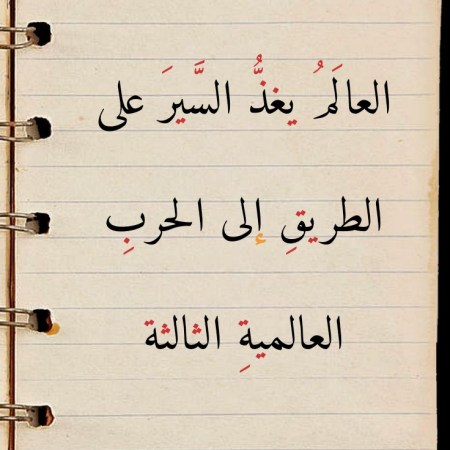 العالَمُ يغذُّ السَّيرَ على
الطريقِ إلى الحربِ
العالميةِ الثالثة